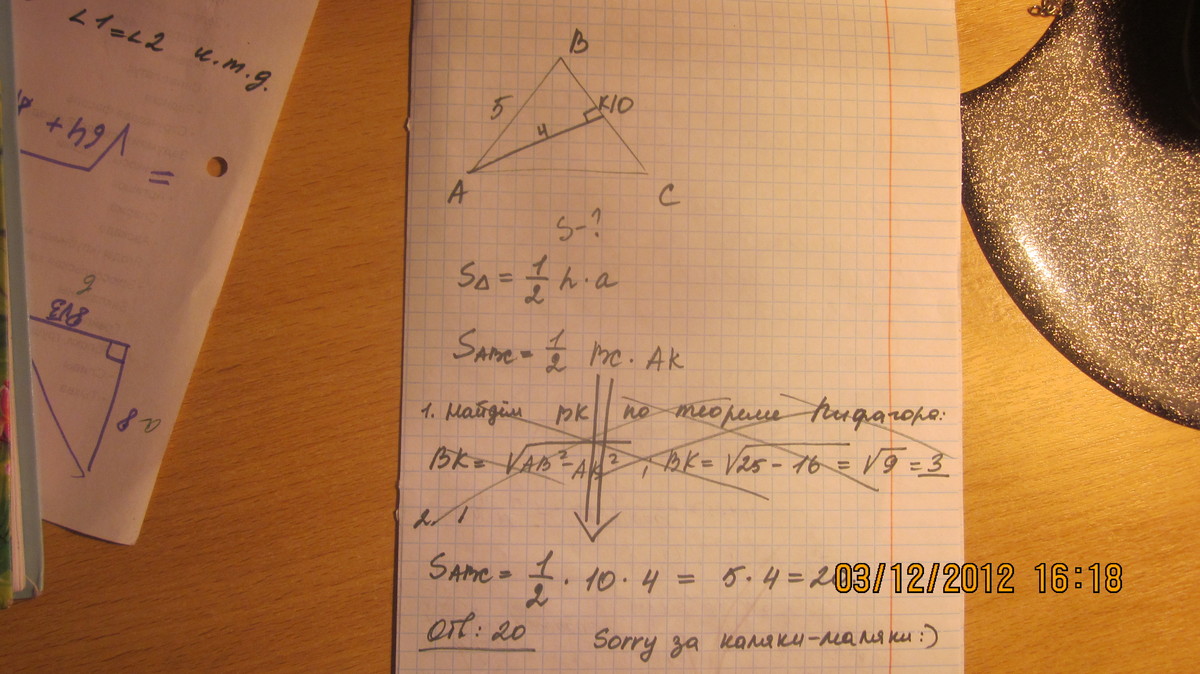 ∠1=∠2 и.т.д.
√64+
=
8√3
8
B
5
K10
4
A
C
S-?
S△ = 1/2 h·a
SABC = 1/2 BC · AK
1. Найдём BK по теореме Пифагора:
BK = √AB²-AK² ; BK = √25-16 = √9 = 3
2.
SABC = 1/2 · 10 · 4 = 5·4 = 20
03/12/2012 16:18
Отв: 20 Sorry за каляки-маляки:)